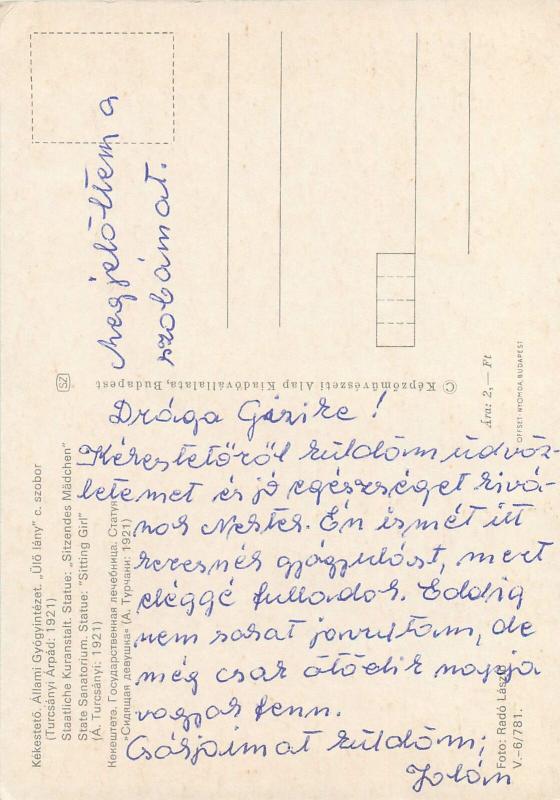 Megjelöltem a
szobámat.
Drága Gizike!
Kékestetőről küldöm üdvöz-
letemet és jó egészséget kivá-
nok Nektek. Én ismét itt
keresnék gyógyulást, mert
eléggé fulladok. Eddig
nem sokat javultam, de
még csak ötödik napja
vagyok fenn.
Csókjaimat küldöm;
Jolán
Kékestető. Állami Gyógyintézet. „Ülő lány" c. szobor
(Turcsányi Árpád: 1921)
Staatliche Kuranstalt. Statue: „Sitzendes Mädchen"
State Sanatorium. Statue: "Sitting Girl"
(Á. Turcsányi: 1921)
Кекештетё. Государственная лечебница. Статуя
«Сидящая девушка» (А. Турчани: 1921)
SZ
© Képzőművészeti Alap Kiadóvállalata, Budapest
Ára: 2,— Ft
OFFSET-NYOMDA, BUDAPEST
Foto: Radó László
V.–6/781.